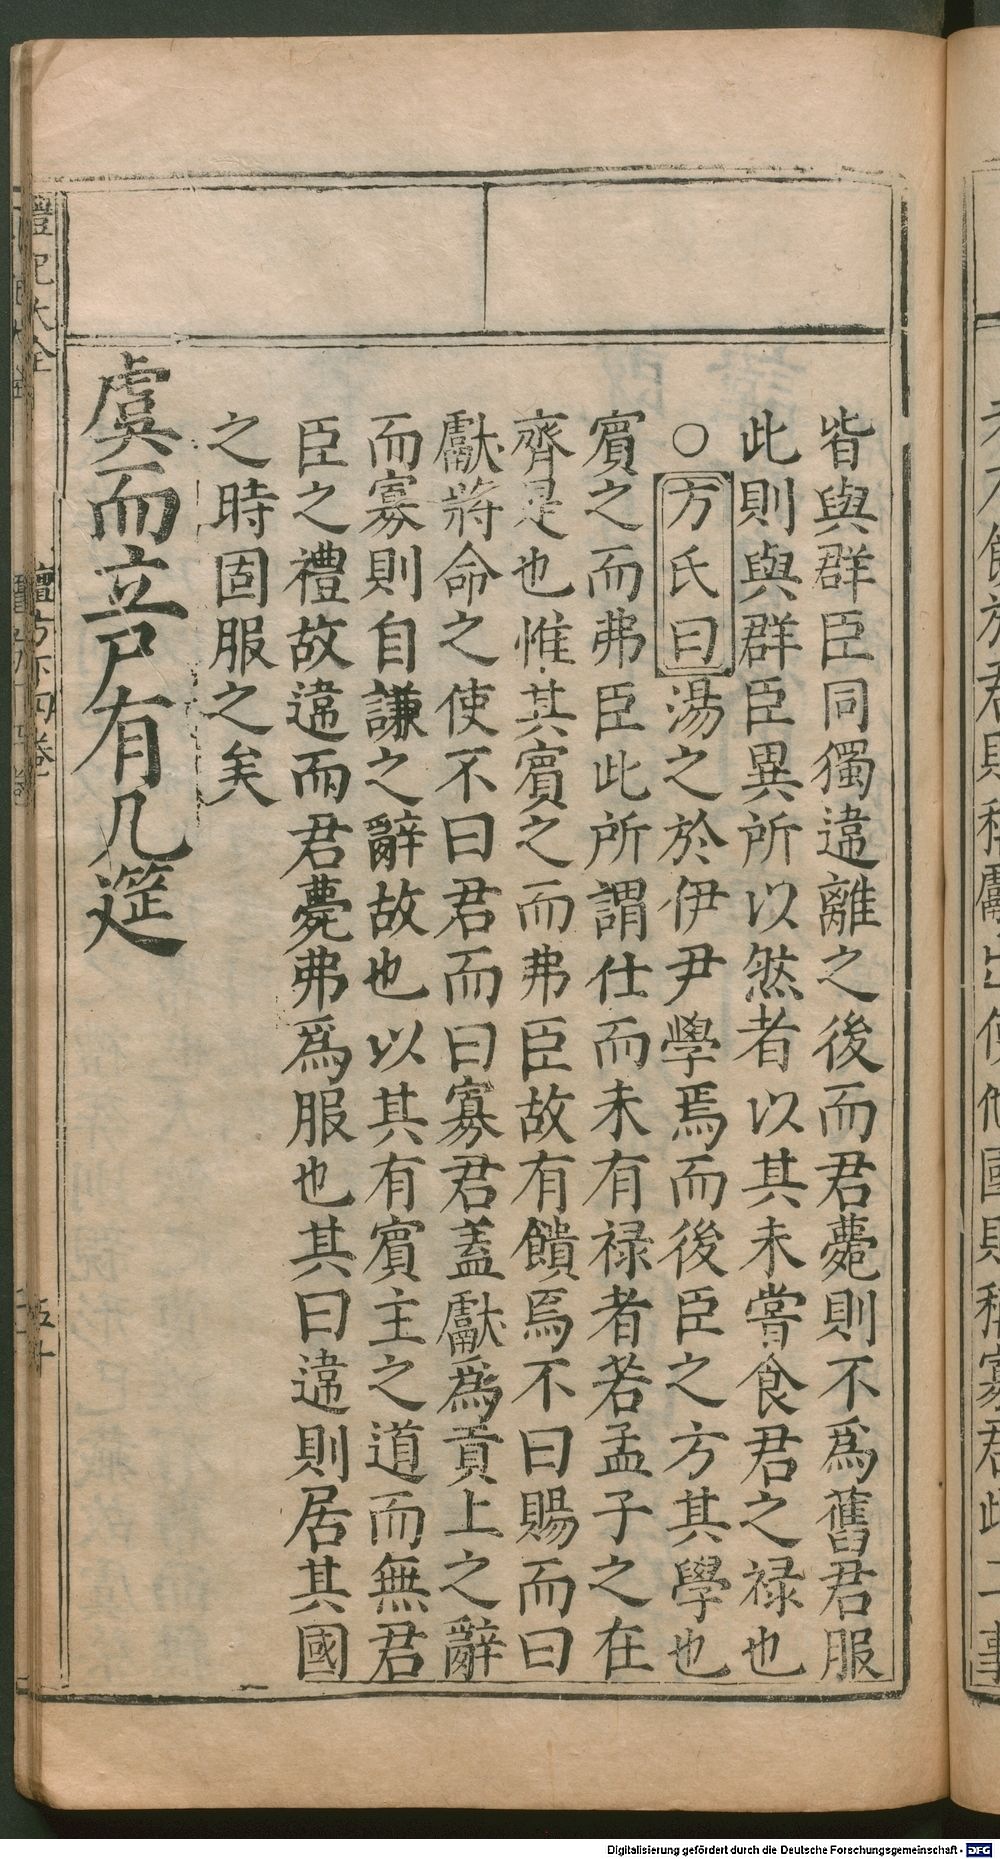 皆與群臣同獨違離之後而君薨則不爲舊君服
此則與群臣異所以然者以其未嘗食君之禄也
○方氏曰湯之於伊尹學焉而後臣之方其學也
賓之而弗臣此所謂仕而未有禄者若孟子之在
齊是也惟其賓之而弗臣故有饋焉不曰賜而曰
獻將命之使不曰君而曰寡君蓋獻爲貢上之辭
而寡則自謙之辭故也以其有賓主之道而無君
臣之禮故違而君薨弗爲服也其曰違則居其國
之時固服之矣
虞而立尸有几筵
禮記大全
檀弓下四卷
五十
Digitalisierung gefördert durch die Deutsche Forschungsgemeinschaft - DFG